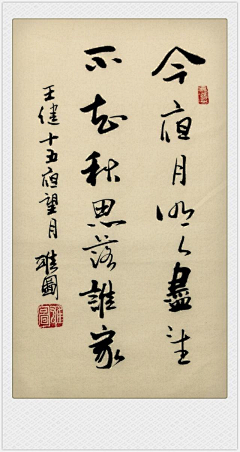 今夜月明人盡望
不知秋思落誰家
王健十五夜望月 雄圖